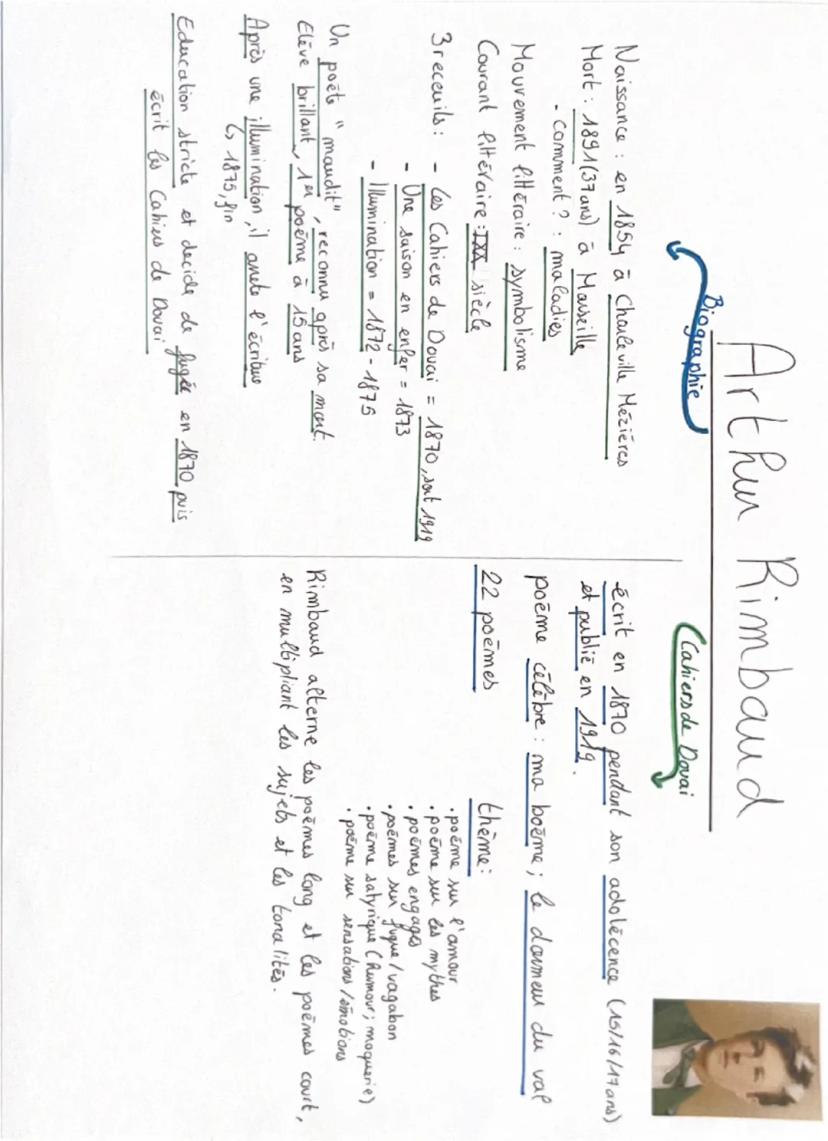 Arthur Rimbaud
Biographie
Naissance : en 1854 à Charleville Mézières
Mort : 1891 (37 ans) à Marseille
- comment ? : maladies
Mouvement littéraire : symbolisme
Courant littéraire : IXX siècle
3 receuils : - Les Cahiers de Douai = 1870, sort 1919
- Une saison en enfer = 1873
- Illumination = 1872 - 1875
Un poète "maudit", reconnu après sa mort.
Elève brillant, 1er poème à 15 ans
Après une illumination, il arrete l'écriture
↳ 1875, fin
Education stricte et decide de fugée en 1870 puis
écrit les Cahiers de Douai
Cahiers de Douai
écrit en 1870 pendant son adolécence (15/16/17 ans)
et publié en 1919.
poème célèbre : ma boème ; le dormeur du val
22 poèmes
thème :
• poème sur l'amour
• poème sur les mythes
• poèmes engagés
• poèmes sur fugue / vagabon
• poème satyrique (humour ; moquerie)
• poème sur sensations / émotions
Rimbaud alterne les poèmes long et les poèmes court,
en multipliant les sujets et les tonalités.